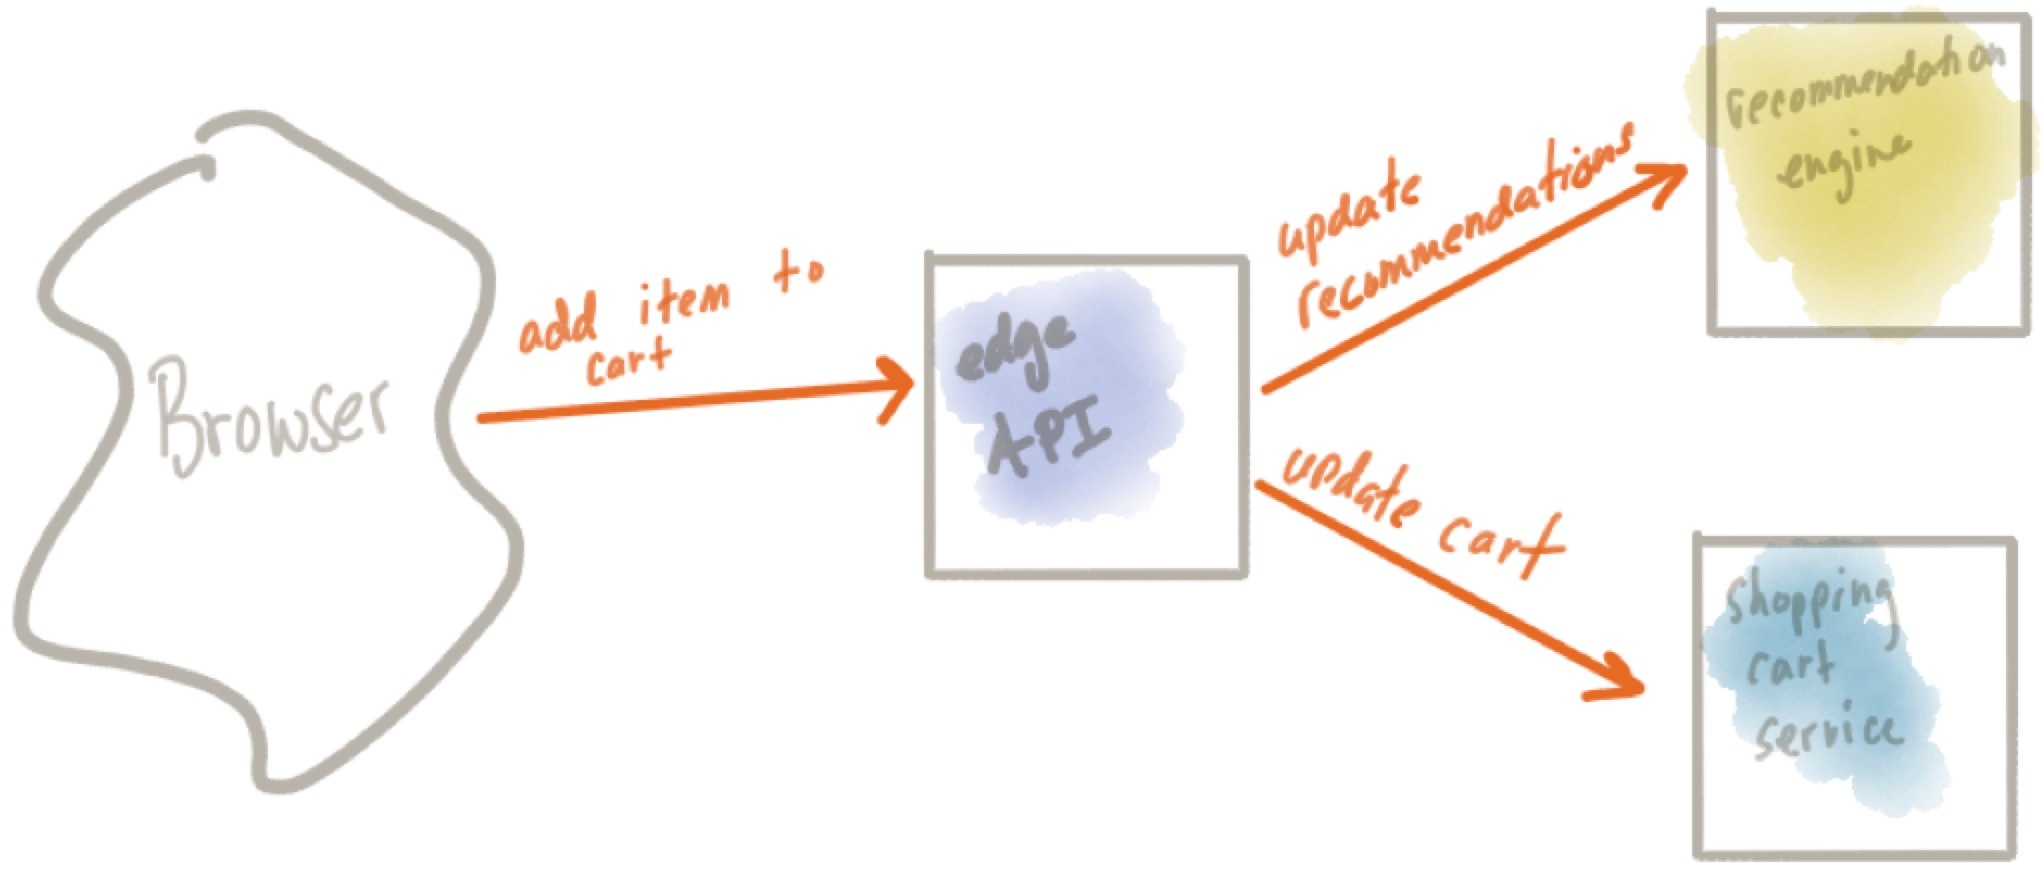 Browser
add item to
cart
edge
API
update
recommendations
recommendation
engine
update cart
shopping
cart
service